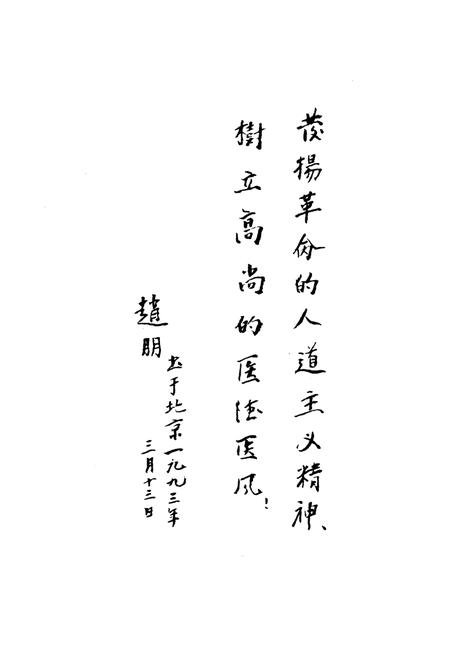 發揚革命的人道主义精神、
樹立高尚的医德医风！
趙明
书于北京一九九三年
三月十三日